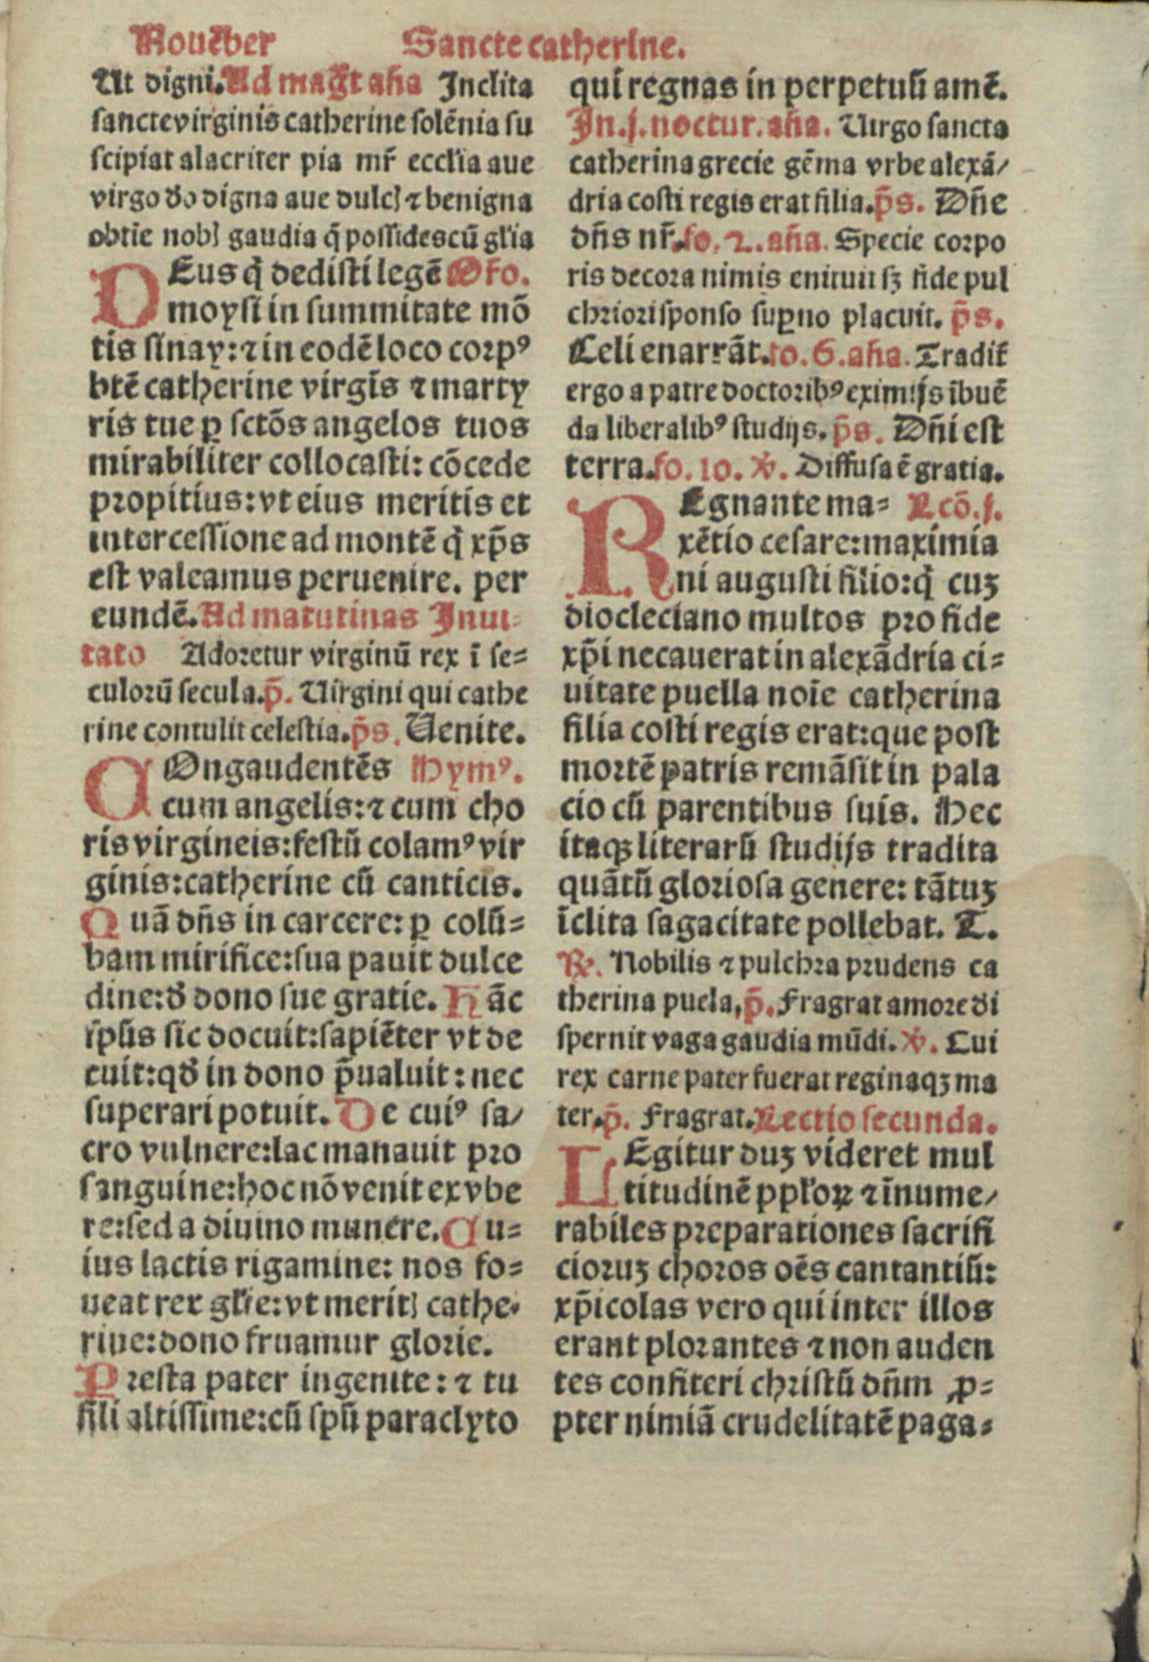 Nouēber Sancte catherine.
Ut digni. Ad mag̃t aña Inclita
sancte virginis catherine solēnia su
scipiat alacriter pia mr̃ eccl̃ia aue
virgo do digna aue dulcꝭ ⁊ benigna
obtīe nobꝭ gaudia q̄ possides cū gl̃ia
DEus q̇ dedisti legē Or̃o.
moysi in summitate mō
tis sinay: ⁊ in eodē loco corpꝰ
btē catherine virgīs ⁊ marty
ris tue ꝑ sctōs angelos tuos
mirabiliter collocasti: cōcede
propitius: vt eius meritis et
intercessione ad montē q̇ xp̄s
est valeamus peruenire. per
eundē. Ad matutinas Inui-
tato Adoretur virginū rex ī se-
culorū secula. p̄. Uirgini qui cathe
rine contulit celestia. p̄s. Uenite.
COngaudentēs Hymꝰ.
cum angelis: ⁊ cum cho
ris virgineis: festū colamꝰ vir
ginis: catherine cū canticis.
Quā dn̄s in carcere: ꝑ colū-
bam mirifice: sua pauit dulce
dine: đ dono sue gratie. Hāc
sp̄us sic docuit: sapiēter vt de
cuit: qđ in dono p̄ualuit: nec
superari potuit. De cuiꝰ sa/
cro vulnere: lac manauit pro
sanguine: hoc nō venit ex vbe
re: sed a diuino munere. Cu-
ius lactis rigamine: nos fo-
ueat rex gl̃ie: vt meritꝭ cathe-
rine: dono fruamur glorie.
Presta pater ingenite: ⁊ tu
fili altissime: cū spū paraclyto
qui regnas in perpetuū amē.
In .j. noctur. aña. Uirgo sancta
catherina grecie gēma vrbe alexā/
dria costi regis erat filia. p̄s. Dn̄e
dn̄s nr̃. fo. 2. aña. Specie corpo
ris decora nimis enituit sꝫ fide pul
chriori sponso suꝑno placuit. p̄s.
Celi enarrāt. fo. 6. aña. Tradit̃
ergo a patre doctoribꝰ eximijs ībuē
da liberalibꝰ studijs. p̄s. Dn̄i est
terra. fo. 10. ℣. Diffusa ē gratia.
REgnante ma- Lcō. j.
xētio cesare: maximia
ni augusti filio: q̇ cuꝫ
diocleciano multos pro fide
xp̄i necauerat in alexādria ci-
uitate puella noīe catherina
filia costi regis erat: que post
mortē patris remāsit in pala
cio cū parentibus suis. Hec
itaqꝫ literarū studijs tradita
quātū gloriosa genere: tātuꝫ
īclita sagacitate pollebat. T.
℟. Nobilis ⁊ pulchra prudens ca
therina puela, p̄. Fragrat amore di
spernit vaga gaudia mūdi. ℣. Cui
rex carne pater fuerat reginaqꝫ ma
ter. p̄. Fragrat. Lectio secunda.
LEgitur duꝫ videret mul
titudinē ppl̃oꝝ ⁊ īnume/
rabiles preparationes sacrifi
cioruꝫ choros oēs cantantiū:
xp̄icolas vero qui inter illos
erant plorantes ⁊ non auden
tes confiteri christū dn̄m ꝓ-
pter nimiā crudelitatē paga-